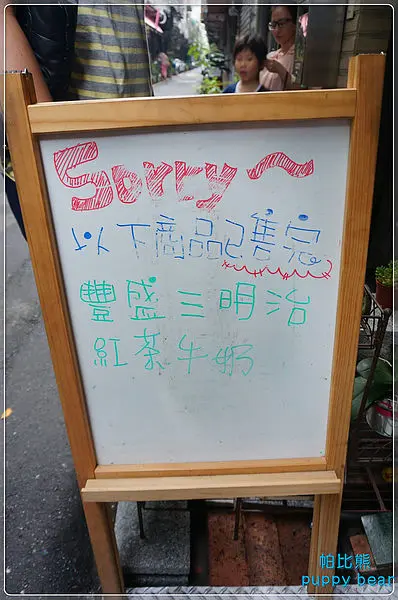 Sorry~
以下商品已售完
豐盛三明治
紅茶牛奶
帕比熊
puppy bear